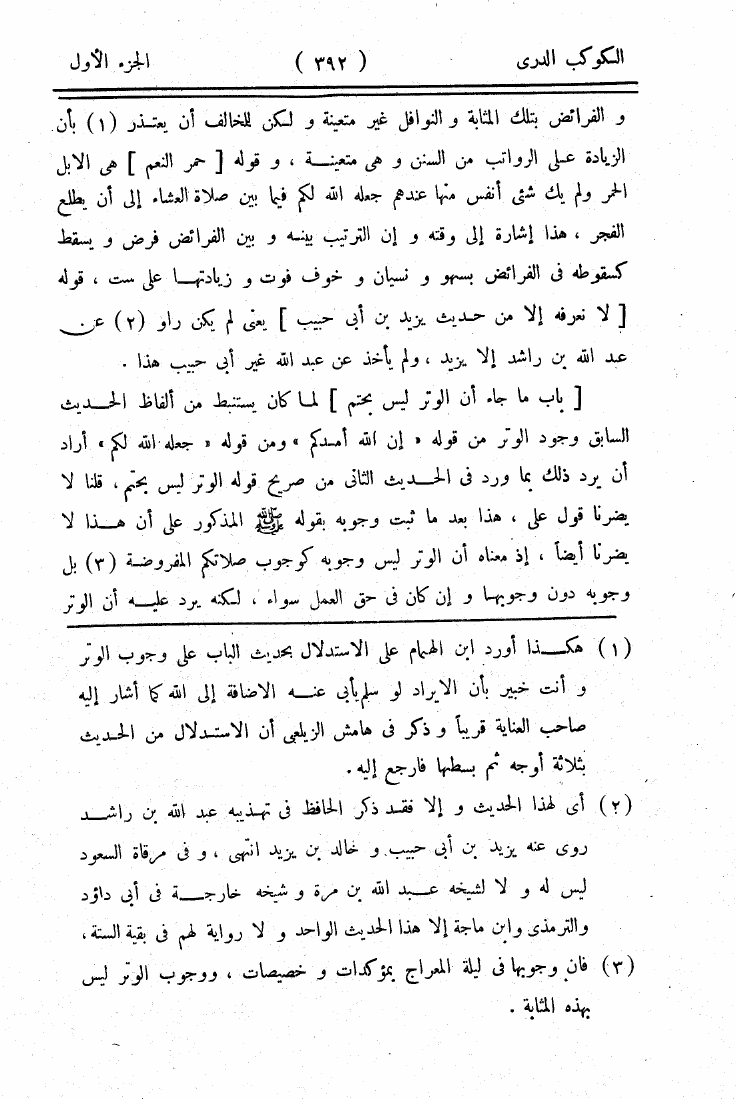 الكوكب الدرى ( ٣٩٢ ) الجزء الأول
و الفرائض بتلك المثابة و النوافل غير متعينة و لكن للخالف أن يعتذر (١) بأن
الزيادة على الرواتب من السنن و هى متعينة ، و قوله [ حمر النعم ] هى الابل
الحمر ولم يك شئى أنفس منها عندهم جعله الله لكم فيما بين صلاة العشاء إلى أن يطلع
الفجر ، هذا إشارة إلى وقته و إن الترتيب بينه و بين الفرائض فرض و يسقط
كسقوطه فى الفرائض بسهو و نسيان و خوف فوت و زيادتها على ست ، قوله
[ لا نعرفه إلا من حديث يزيد بن أبى حبيب ] يعنى لم يكن راو (٢) عن
عبد الله بن راشد إلا يزيد ، ولم يأخذ عن عبد الله غير أبى حبيب هذا .
[ باب ما جاء أن الوتر ليس بحتم ] لما كان يستنبط من ألفاظ الحديث
السابق وجود الوتر من قوله « إن الله أمدكم » ومن قوله « جعله الله لكم » أراد
أن يرد ذلك بما ورد فى الحديث الثانى من صريح قوله الوتر ليس بحتم ، قلنا لا
يضرنا قول على ، هذا بعد ما ثبت وجوبه بقوله ﷺ المذكور على أن هذا لا
يضرنا أيضاً ، إذ معناه أن الوتر ليس وجوبه كوجوب صلاتكم المفروضة (٣) بل
وجوبه دون وجوبها و إن كان فى حق العمل سواء ، لكنه يرد عليه أن الوتر
(١) هكذا أورد ابن الهمام على الاستدلال بحديث الباب على وجوب الوتر
و أنت خبير بأن الايراد لو سلم يأبى عنه الاضافة إلى الله كما أشار إليه
صاحب العناية قريباً و ذكر فى هامش الزيلعى أن الاستدلال من الحديث
بثلاثة أوجه ثم بسطها فارجع إليه .
(٢) أى لهذا الحديث و إلا فقد ذكر الحافظ فى تهذيبه عبد الله بن راشد
روى عنه يزيد بن أبى حبيب و خالد بن يزيد انتهى ، و فى مرقاة السعود
ليس له و لا لشيخه عبد الله بن مرة و شيخه خارجة فى أبى داؤد
والترمذى وابن ماجة إلا هذا الحديث الواحد و لا رواية لهم فى بقية الستة ،
(٣) فان وجوبها فى ليلة المعراج بمؤكدات و خصيصات ، ووجوب الوتر ليس
بهذه المثابة .